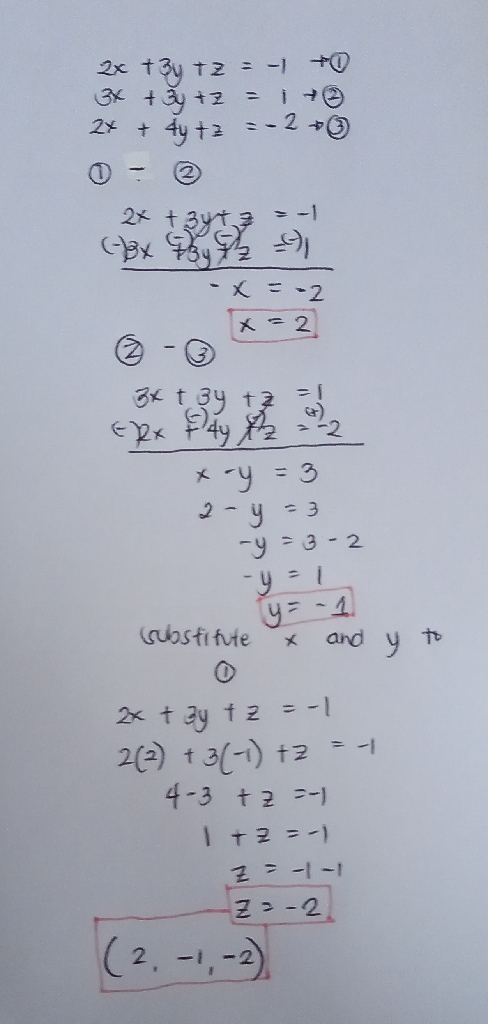 2x + 3y + z = -1 → ①
3x + 3y + z = 1 → ②
2x + 4y + z = -2 → ③
① - ②
2x + 3y + z = -1
(-)3x (-)+3y (-)+z =(-)1
- x = -2
x = 2
② - ③
3x + 3y + z = 1
(-)2x (-)+4y (-)+z = (+)-2
x - y = 3
2 - y = 3
-y = 3 - 2
-y = 1
y = -1
substitute x and y to
①
2x + 3y + z = -1
2(2) + 3(-1) + z = -1
4-3 + z = -1
1 + z = -1
z = -1 -1
z = -2
(2, -1, -2)